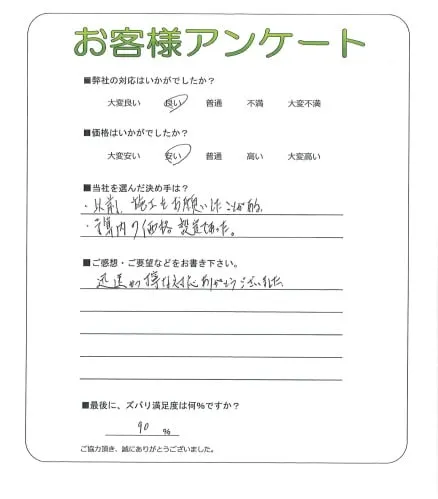 お客様アンケート
■弊社の対応はいかがでしたか？
大変良い 良い 普通 不満 大変不満
■価格はいかがでしたか？
大変安い 安い 普通 高い 大変高い
■当社を選んだ決め手は？
・以前、施工をお願いしたことがある。
・予算内の価格設定であった。
■ご感想・ご要望などをお書き下さい。
迅速かつ 対応ありがとうございました。
■最後に、ズバリ満足度は何％ですか？
90 %
ご協力頂き、誠にありがとうございました。